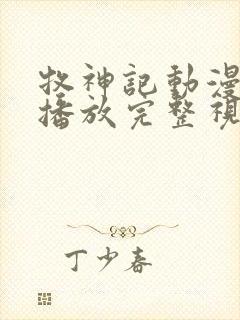 牧神記動漫
播放完整視
丁少春